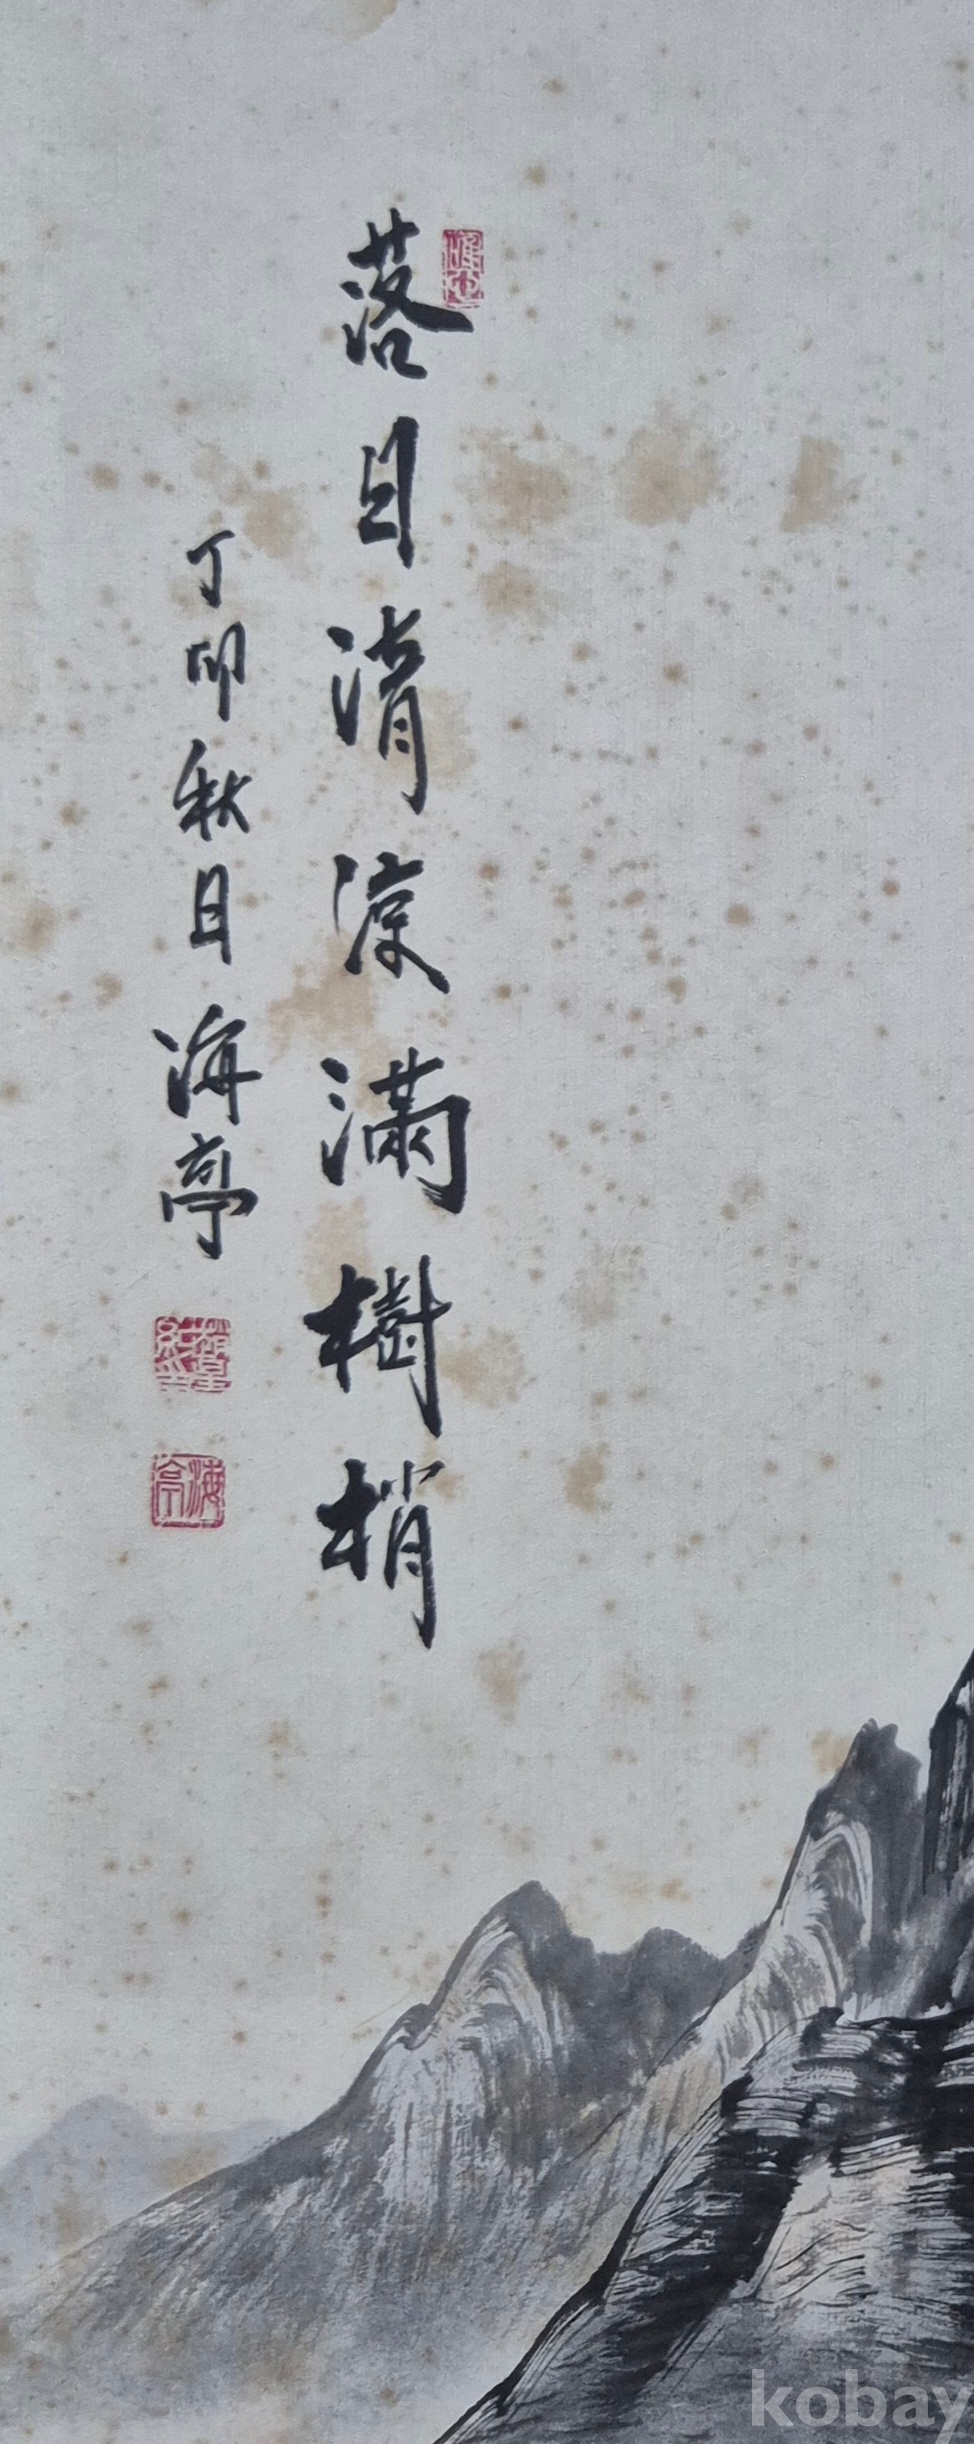 落日清涼滿樹梢
丁卯秋日 海亭
海亭
kobay